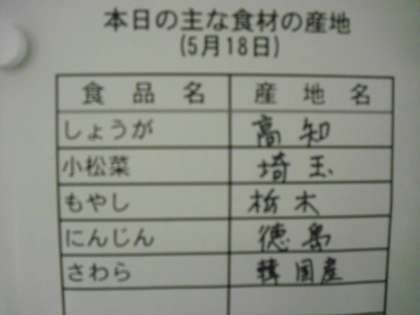 本日の主な食材の産地
(5月18日)
食品名 産地名
しょうが 高知
小松菜 埼玉
もやし 栃木
にんじん 徳島
さわら 韓国産